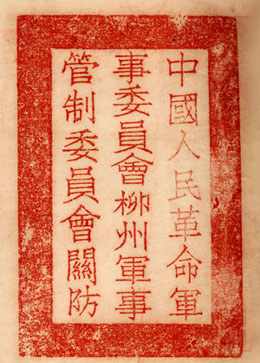 中國人民革命軍
事委員會柳州軍事
管制委員會關防